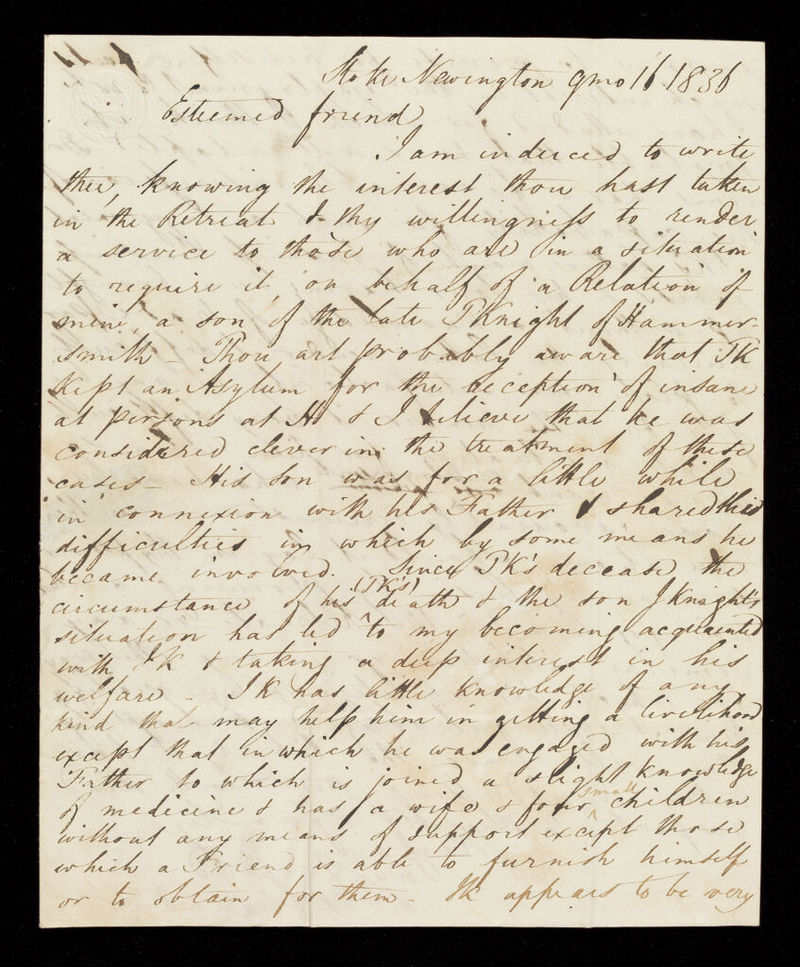 Stoke Newington 9mo 16 1836
Esteemed friend
I am induced to write
thee, knowing the interest thou hast taken
in the Retreat & thy willingness to render
a service to those who are in a situation
to require it, on behalf of a Relation of
mine, a son of the late PKnight of Hammer-
smith – Thou art probably aware that PK
kept an Asylum for the reception of insane
persons at H & I believe that he was
considered clever in the treatment of these
cases – His son was for a little while
in connexion with his Father & shared the
difficulties in which by some means he
became involved. Since PK's decease the
circumstance of his (PK's) death & the son JKnight's
situation has led to my becoming acquainted
with JK & taking a deep interest in his
welfare – JK has little knowledge of any
kind that may help him in getting a livelihood
except that in which he was engaged with his
Father to which is joined a slight knowledge
of medicine & has a wife & four small children
without any means of support except those
which a Friend is able to furnish himself
or to obtain for them – JK appears to be very